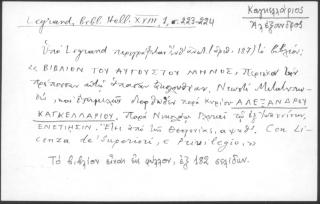 Legrand, Bibl. Hell. XVIII, 1, σ. 223-224
Καγκελλάριος
Ἀλέξανδρος
Ὑπὸ Legrand περιγράφεται (ἀριθ. 187) τὸ βιβλίον:
« ΒΙΒΛΙΟΝ ΤΟΥ ΑΥΓΟΥΣΤΟΥ ΜΗΝΟΣ, Περιέχον τὴν
πρέπουσαν αὐτῷ ἅπασαν Ἀκολουθίαν. Νεωστὶ
καὶ ἐπιμελῶς διορθωθὲν παρὰ Κυρίου ΑΛΕΞΑΝΔΡΟΥ
ΚΑΓΚΕΛΛΑΡΙΟΥ. Παρὰ Νικολάῳ Γλυκεῖ τῷ ἐξ Ἰωαννίνων.
ΕΝΕΤΙΗΣΙΝ. Ἔτει ἀπὸ τῆς Θεογονίας, Con Li-
cenza de' Superiori, e Privilegio.»
Τὸ βιβλίον εἶναι εἰς φύλλον, ἐξ 182 σελίδων.